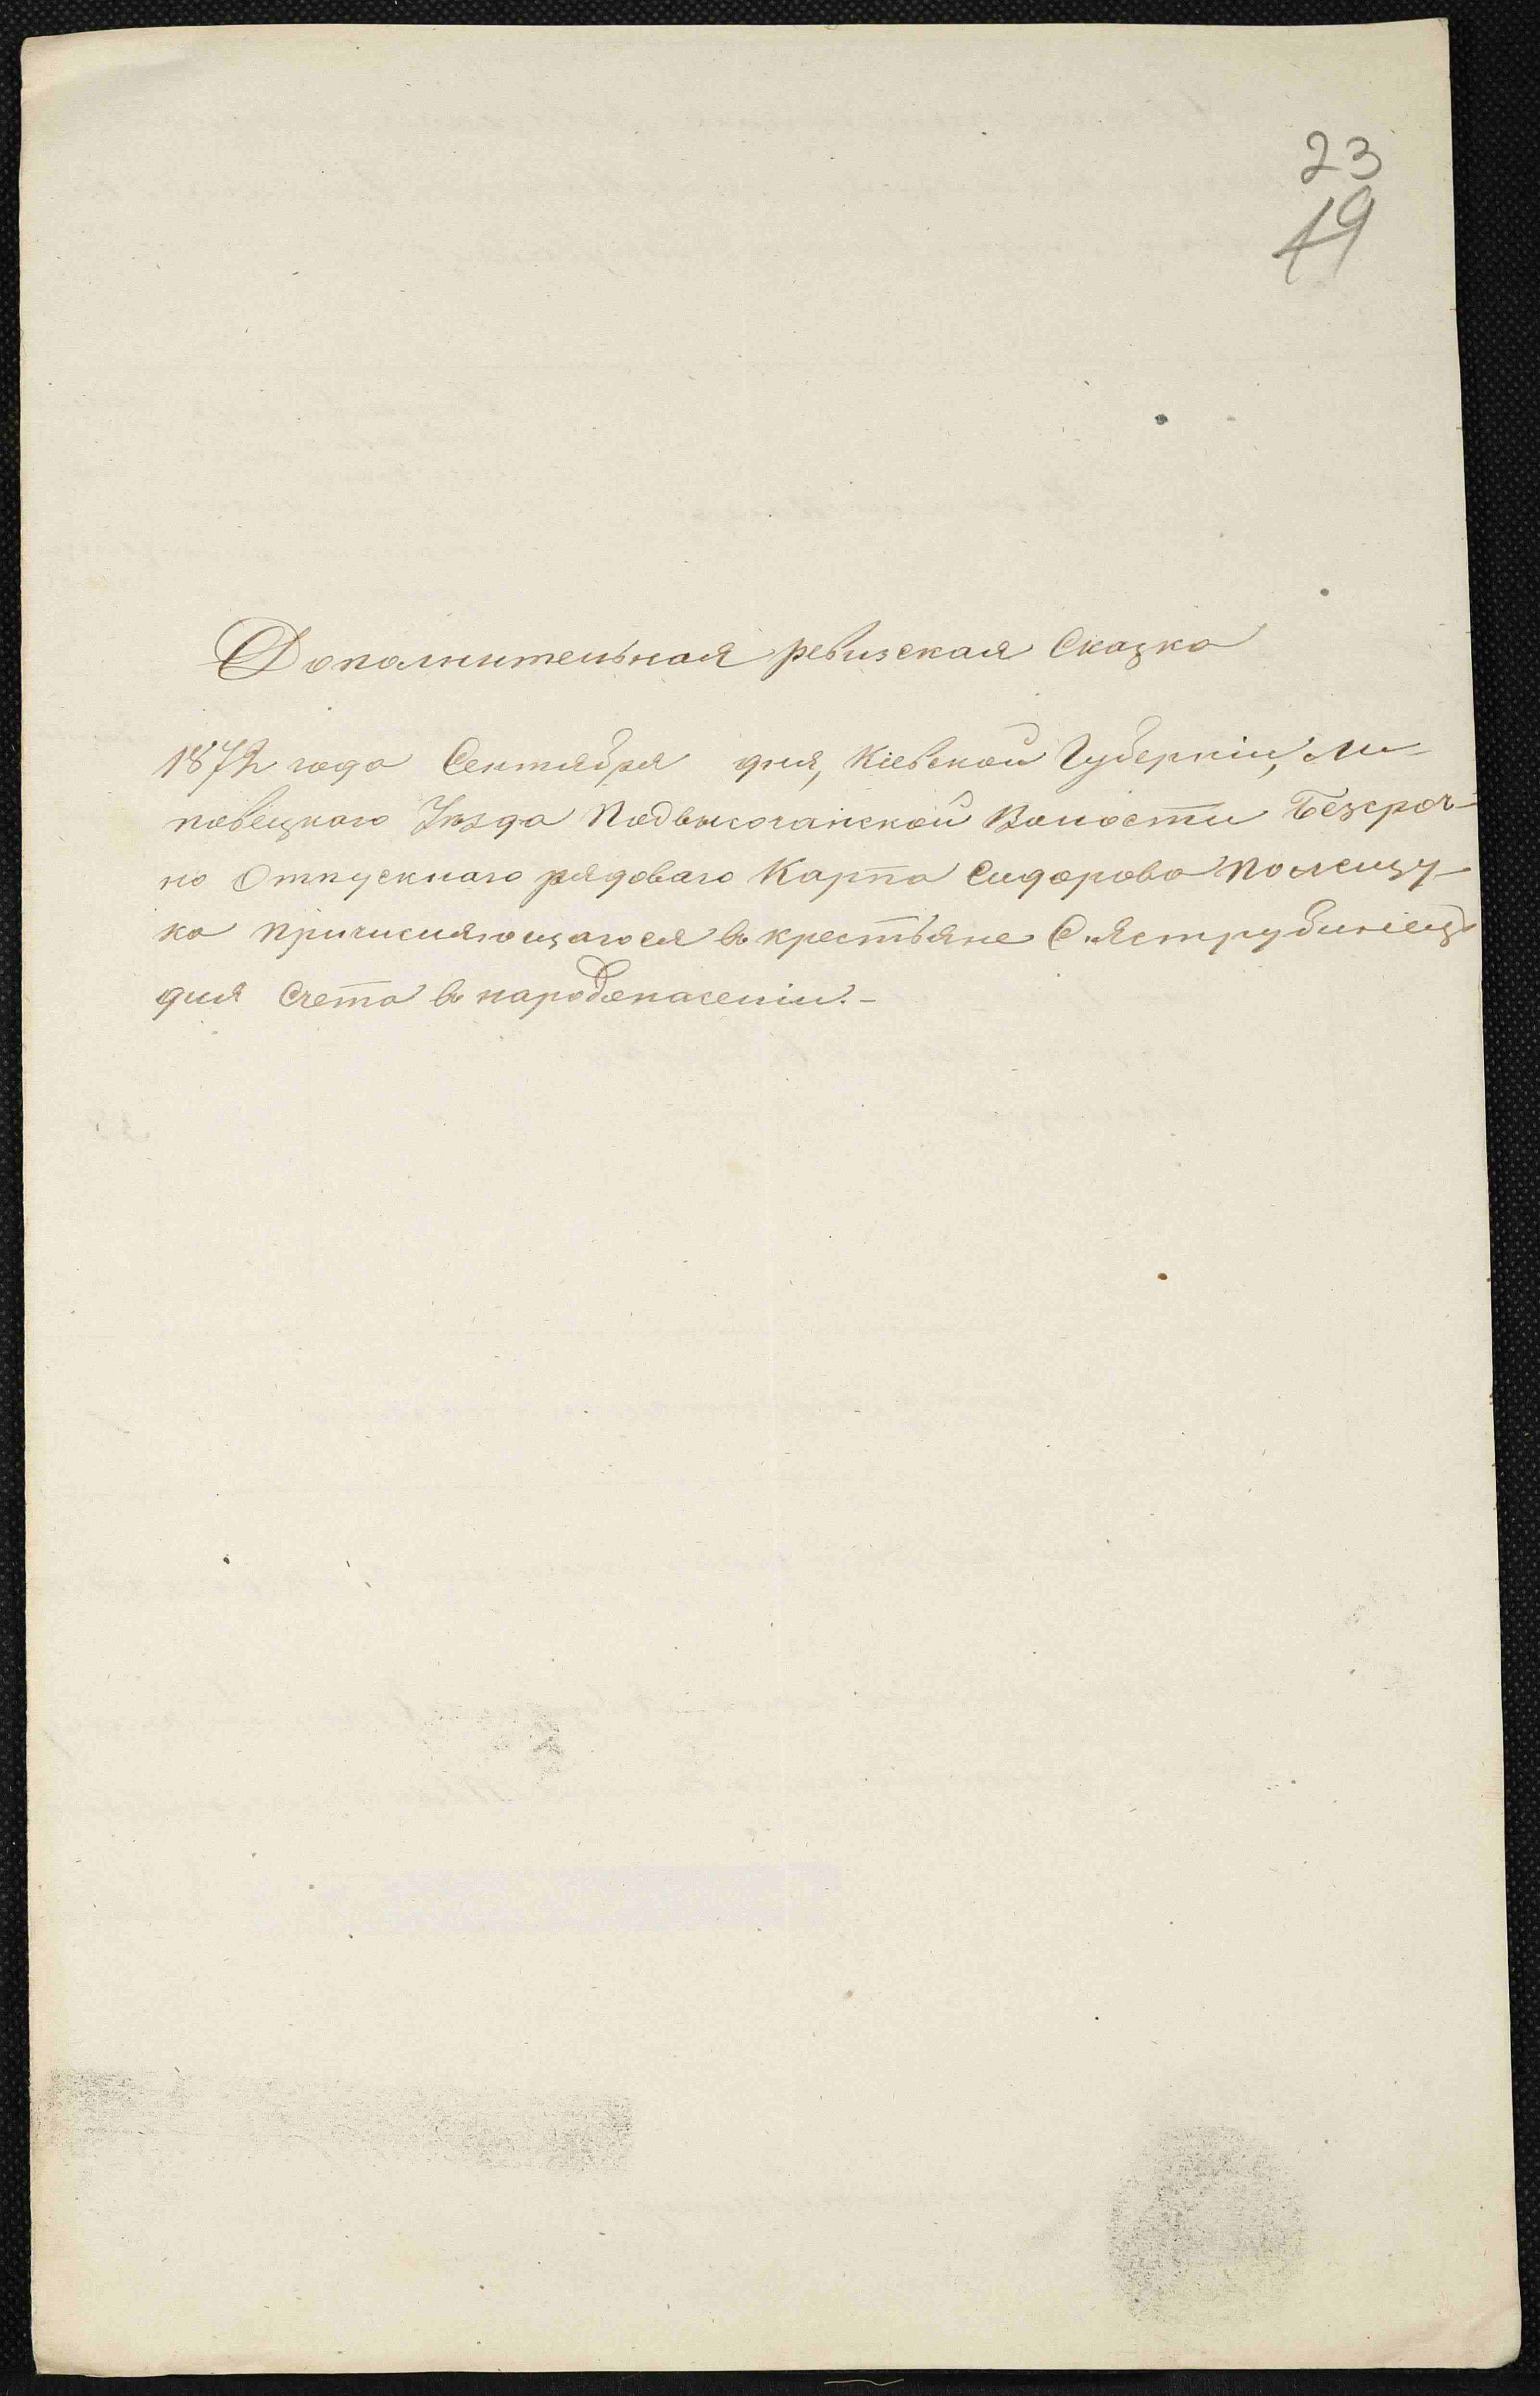 23
19
Дополнительная ревизская Сказка
1872 года Сентября дня, Кіевской Губерніи, Ли-
повецкаго Уѣзда Подвысочанской Волости Безсроч-
но Отпускнаго рядоваго Карпа Сидорова Полищу-
ка причисляющагося въ крестьяне С. Яструбинецъ
для Счета въ народонаселеніи.-